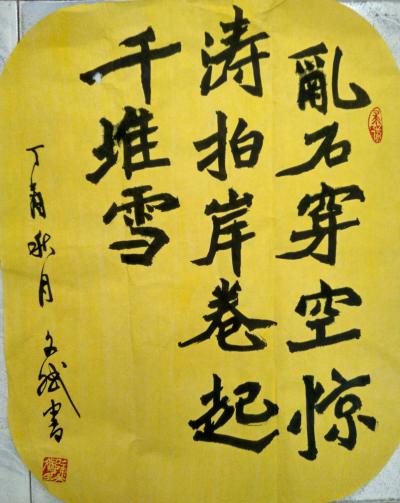 亂石穿空惊
涛拍岸卷起
千堆雪
丁酉秋月 文斌書